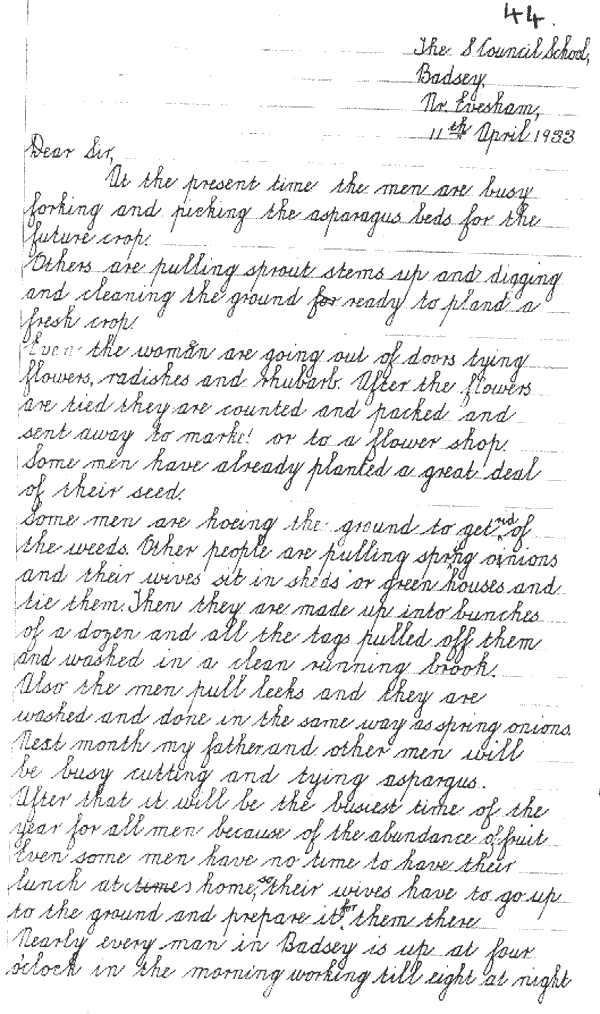 44.
The S Council School,
Badsey,
Nr. Evesham,
11th April 1933
Dear Sir,
At the present time the men are busy
forking and picking the asparagus beds for the
future crop.
Others are pulling sprout stems up and digging
and cleaning the ground for ready to pland a
fresh crop.
Even the woman are going out of doors tying
flowers, radishes and rhubarb. After the flowers
are tied they are counted and packed and
sent away to market or to a flower shop.
Some men have already planted a great deal
of their seed.
Some men are hoeing the ground to get rid of
the weeds. Other people are pulling spring onions
and their wives sit in sheds or green houses and
tie them. Then they are made up into bunches
of a dozen and all the tags pulled off them
and washed in a clean running brook.
Also the men pull leeks and they are
washed and done in the same way as spring onions.
Next month my father and other men will
be busy cutting and tying aspargus.
After that it will be the busiest time of the
year for all men because of the abundance of fruit
Even some men have no time to have their
lunch at times home, so their wives have to go up
to the ground and prepare it for them there
Nearly every man in Badsey is up at four
o'clock in the morning working till eight at night